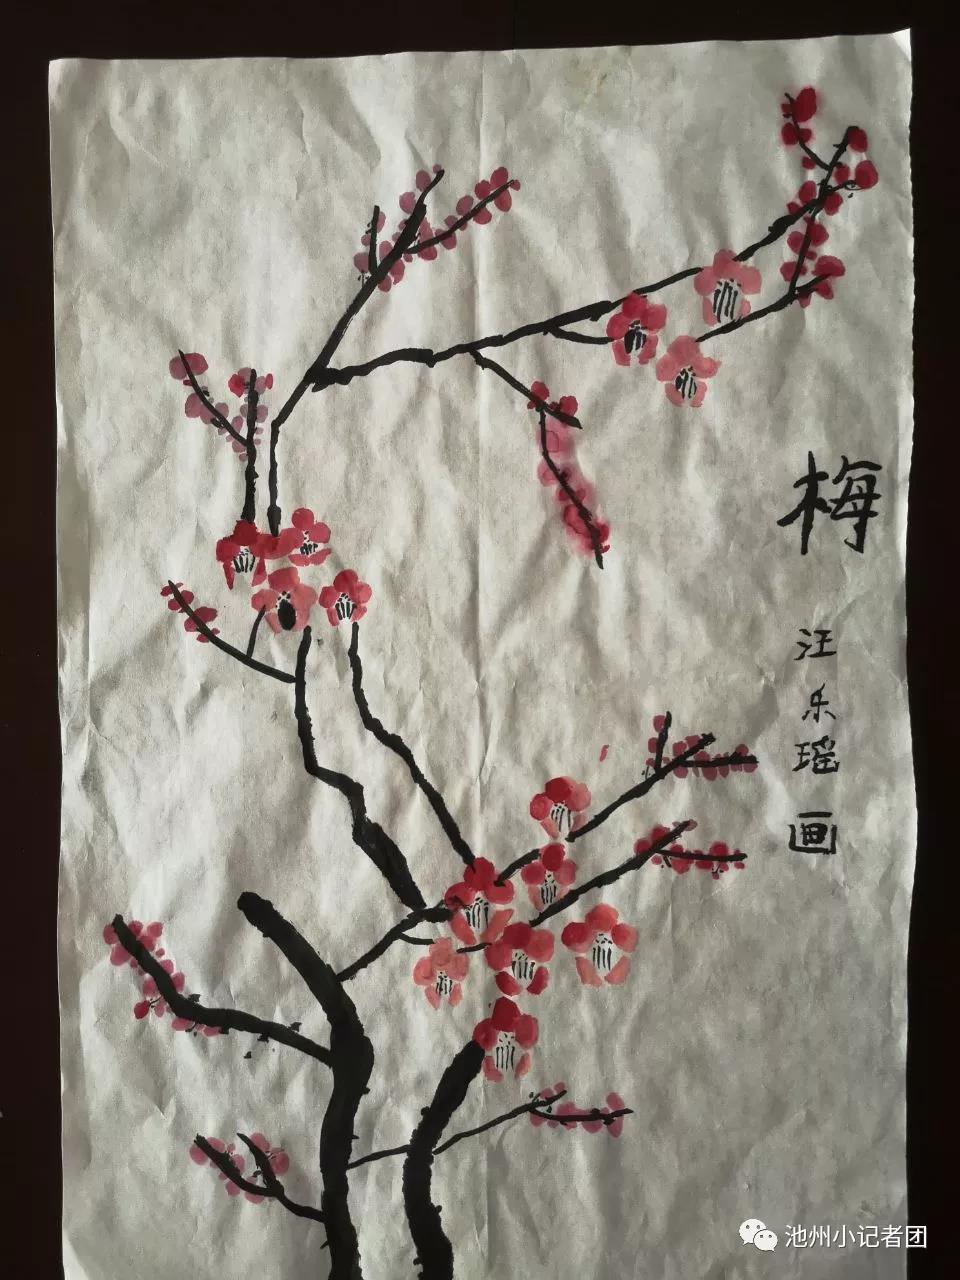 梅
汪乐瑶画
池州小记者团